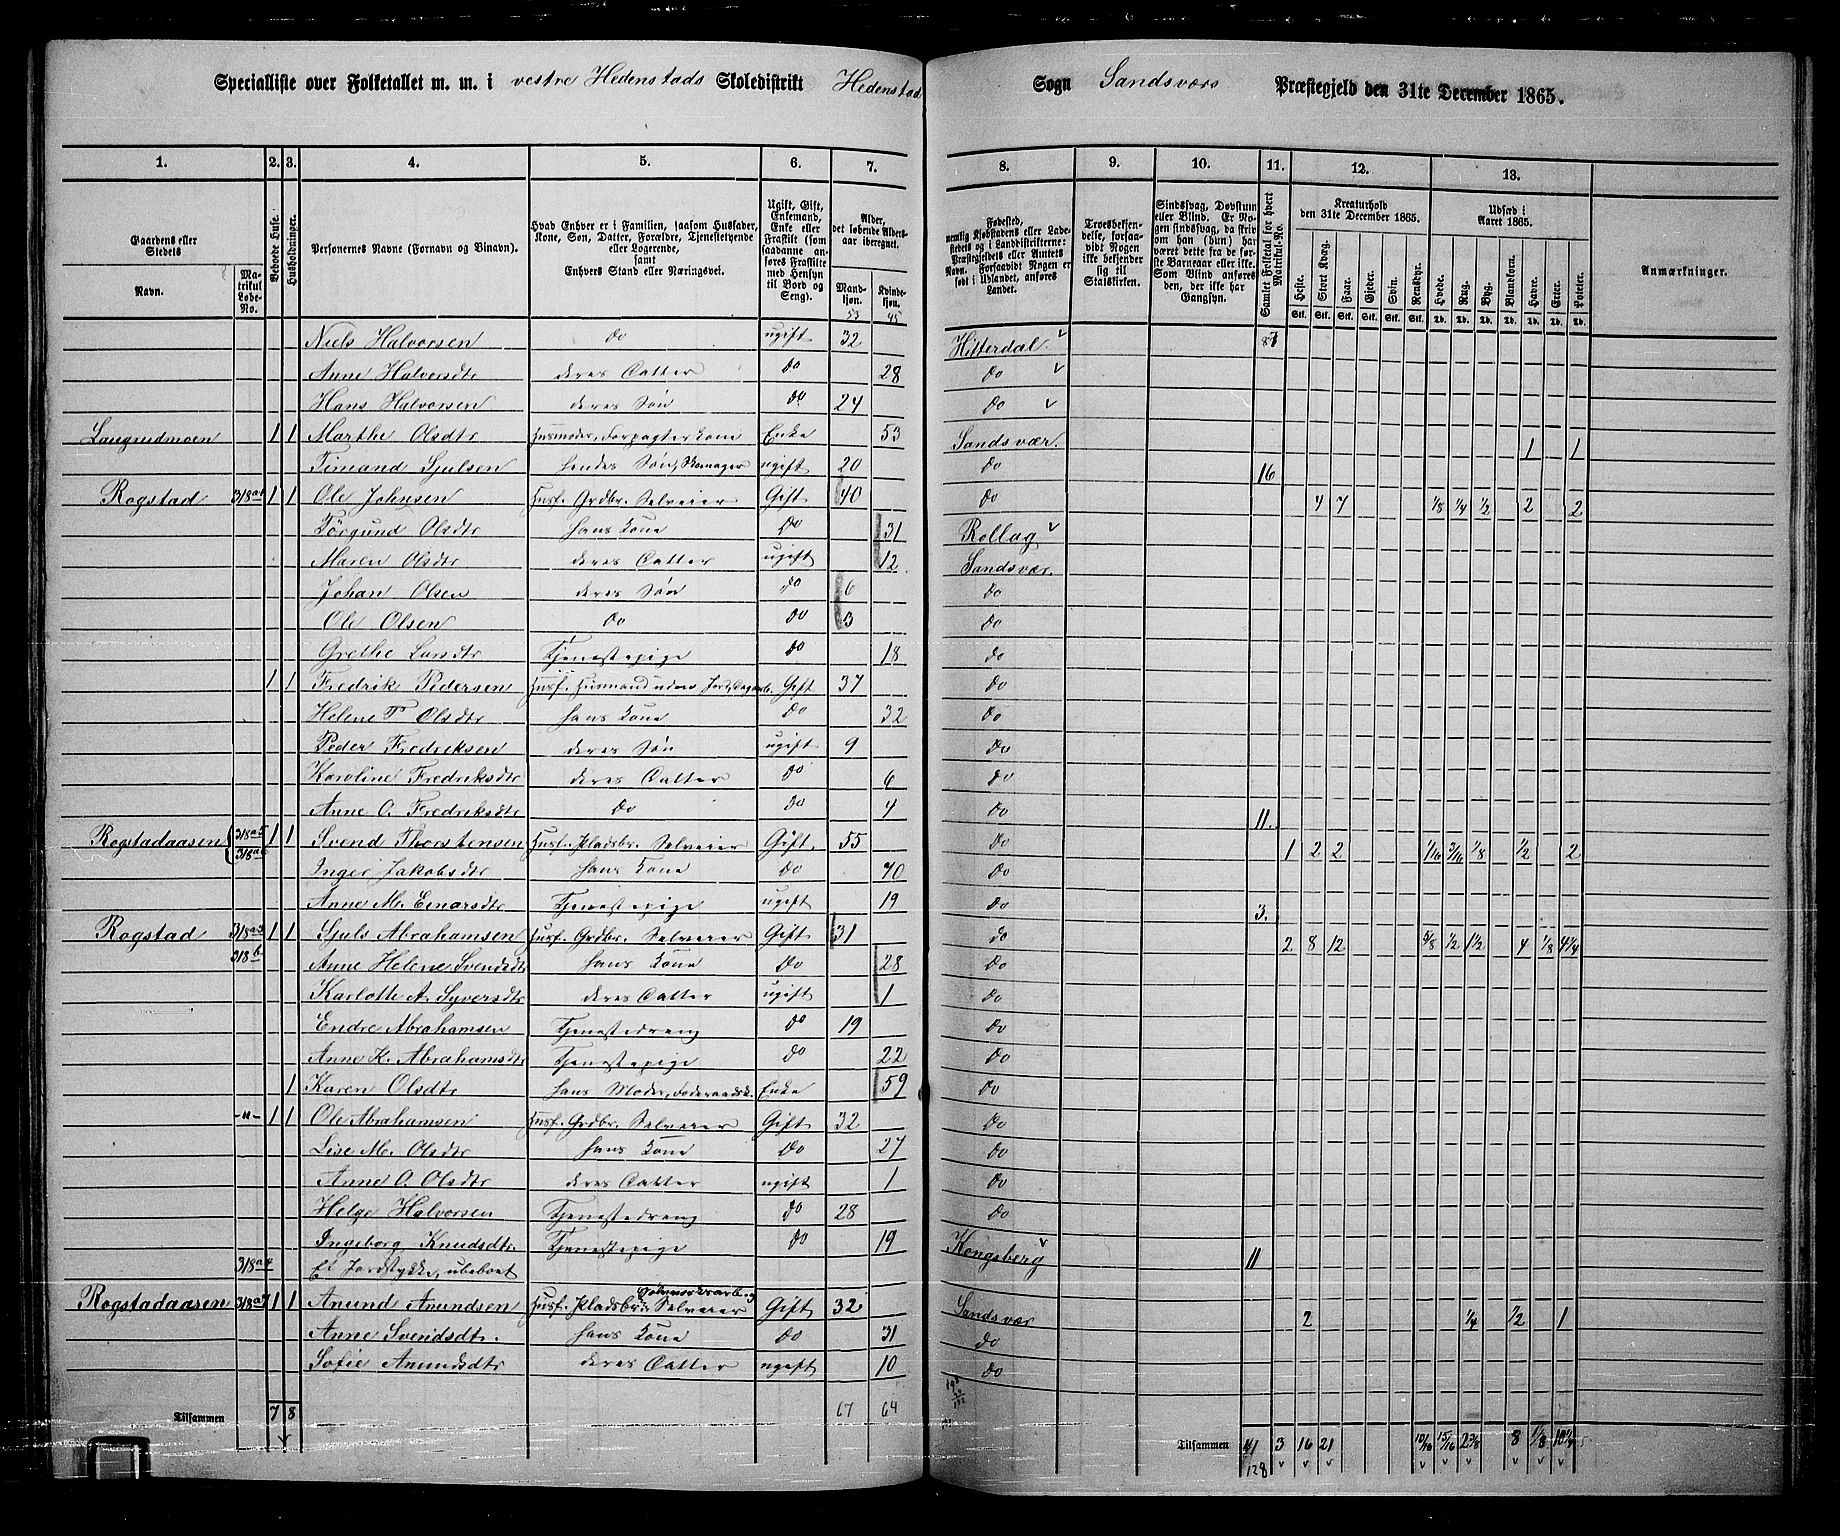 Specialliste over Folketallet m. m. i vestre Hedenstads Skoledistrikt Hedenstad Sogn Sandsværs Præstegjeld den 31te December 1865.
1. 2. 3. 4. 5. 6. 7. 8. 9. 10. 11. 12. 13.
Gaardens eller Stedets Navn.
Matrikul Løbe-No.
Beboede Huse.
Husholdninger.
Personernes Navne (Fornavn og Binavn).
Hvad Enhver er i Familien, saasom Husfader, Kone, Søn, Datter, Forældre, Tjenestetyende eller Logerende, samt Enhvers Stand eller Næringsvei.
Ugift, Gift, Enkemand, Enke eller Fraskilt (som saadanne anføres Fraskilte med Hensyn til Bord og Seng).
Alder, det løbende Aldersaar iberegnet.
Mandkjøn. Kvindekjøn.
53 45
Fødested, nemlig Kjøbstadens eller Ladestedets og i Landdistrikterne: Præstegjeldets eller Amtets Navn. Forsaavidt Nogen er født i Udlandet, anføres Landet.
Troesbekjendelse, forsaavidt Nogen ikke bekjender sig til Statskirken.
Sindssvag, Døvstum eller Blind. Er Nogen sindssvag, da skriv om han (hun) har været dette fra de første Barneaar eller ikke. Som Blind anføres den, der ikke har Gangsyn.
Samlet Folketal for hvert Matrikul-No.
Kreaturhold den 31te December 1865.
Heste. Stort Kvæg. Faar. Gjeder. Svin. Rensdyr.
Udsæd i Aaret 1865.
Hvede. Rug. Byg. Blandkorn. Havre. Erter. Poteter.
Stk. Stk. Stk. Stk. Stk. Stk. Td. Td. Td. Td. Td. Td. Td.
Anmærkninger.
Niels Halvorsen do ugift 32 Hitterdal
Anne Halvorsdtr deres Datter do 28 do
Hans Halvorsen deres Søn do 24 do
Laugrudmoen 1 1 Marthe Olsdtr Husmoder, Forpagterkone Enke 53 Sandsvær. 1 1
Timand Sjulsen hendes Søn, Skomager ugift 20 do 16
Rogstad 318a1 1 1 Ole Johnsen Husf. Grdbr. Selveier Gift 40 do 4 7 1/8 1/4 1/2 2 2
Törgund Olsdtr hans Kone do 31 Rollag
Maren Olsdtr deres Datter ugift 12 Sandsvær.
Johan Olsen deres Søn do 6 do
Ole Olsen do do 3 do
Grethe Larsdtr Tjenestepige do 18 do
1 1 Fredrik Pedersen Husf. Husmand uden Jord, Dagarb. Gift 37 do
Helene P Olsdtr hans Kone do 32 do
Peder Fredriksen deres Søn ugift 9 do
Karoline Fredriksdtr deres Datter do 6 do
Anne O. Fredriksdtr do do 4 do 11.
Rogstadaasen 318a5 318a6 1 1 Svend Thorstensen Husf. Pladsbr. Selveier Gift. 55 do 1 2 2 1/16 3/16 1/8 1/2 2
Inger Jakobsdtr hans Kone do 40 do
Anne M. Einarsdtr Tjenestepige ugift 19 do 3.
Rogstad 318a3 318b 1 1 Sjuls Abrahamsen Husf. Grdbr. Selveier Gift 31 do 2 8 12 5/8 1/2 1 1/2 4 1/8 4 1/4
Anne Helene Svendsdtr hans Kone do 28 do
Karlotte A. Syversdtr deres Datter ugift 1 do
Endre Abrahamsen Tjenestedreng do 19 do
Anne K. Abrahamsdtr Tjenestepige do 22 do
1 Karen Olsdtr hans Moder, Føderaadsk. Enke 59 do
-"- 1 1 Ole Abrahamsen Husf. Grdbr. Selveier Gift 32 do
Lise M. Olsdtr hans Kone do 27 do
Anne O. Olsdtr deres Datter ugift 1 do
Helge Halvorsen Tjenestedreng do 28 do
Ingeborg Knudsdtr. Tjenestepige do 19 Kongsberg 11
318a4 Et Jordstykke, ubeboet
Rogstadaasen 318a7 1 1 Anund Anundsen Husf. Pladsbr. Selveier Gift 32 Sandsvær 2 1/4 1/2 1
Anne Svendsdtr. hans Kone do 31 do
Sofie Anundsdtr deres Datter ugift 10 do
Tilsammen 7 8 67 64 Tilsammen 41 3 16 21 10/16 15/16 2 3/8 8 1/8 10 1/4
128